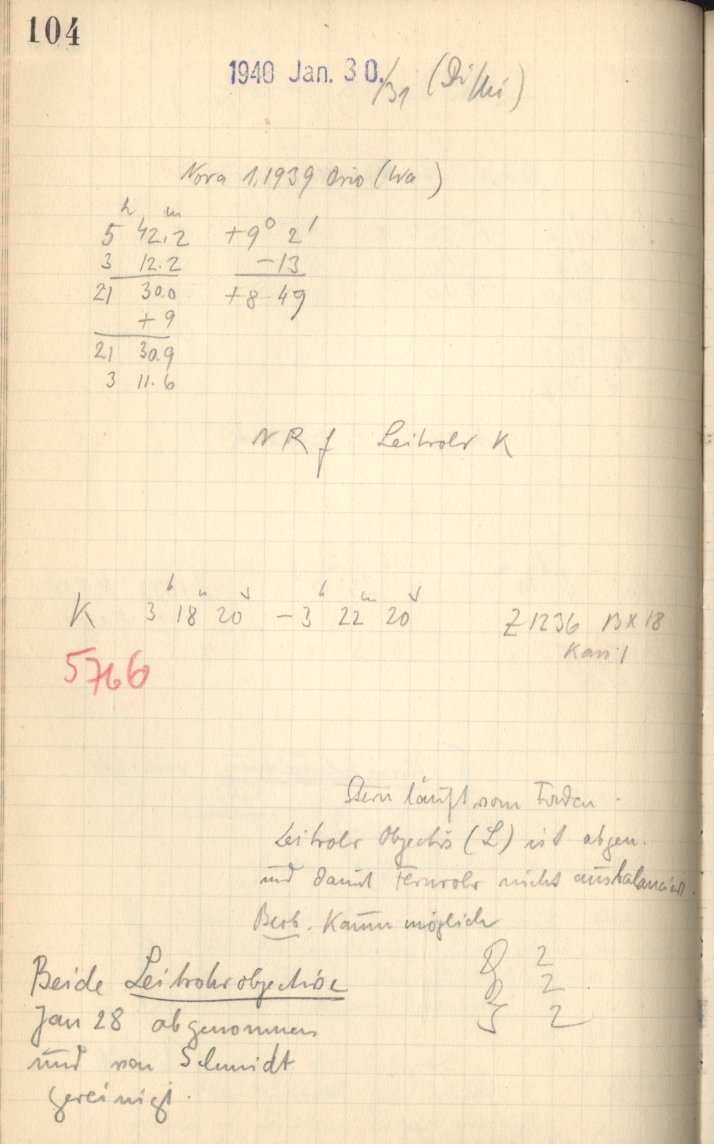 104
1940 Jan. 30./31 (Di/Mi)
Nova 1,1939 Orio (Wa)
h m
5 42.2 +9° 2'
3 12.2 -13
21 30.0 +8 49
+ 9
21 30.9
3 11.6
N R f Leitrohr K
K 3h 18m 20s - 3h 22m 20s Z1236 B X 18
Kass 1
5766
Stern läuft vom Faden.
Leitrohr Objectiv (L) ist abgen.
und damit Fernrohr nicht ausbalanciert.
Beob. Kaum möglich
2
2
2
Beide Leitrohrobjective
Jan 28 abgenommen
und von Schmidt
gereinigt.